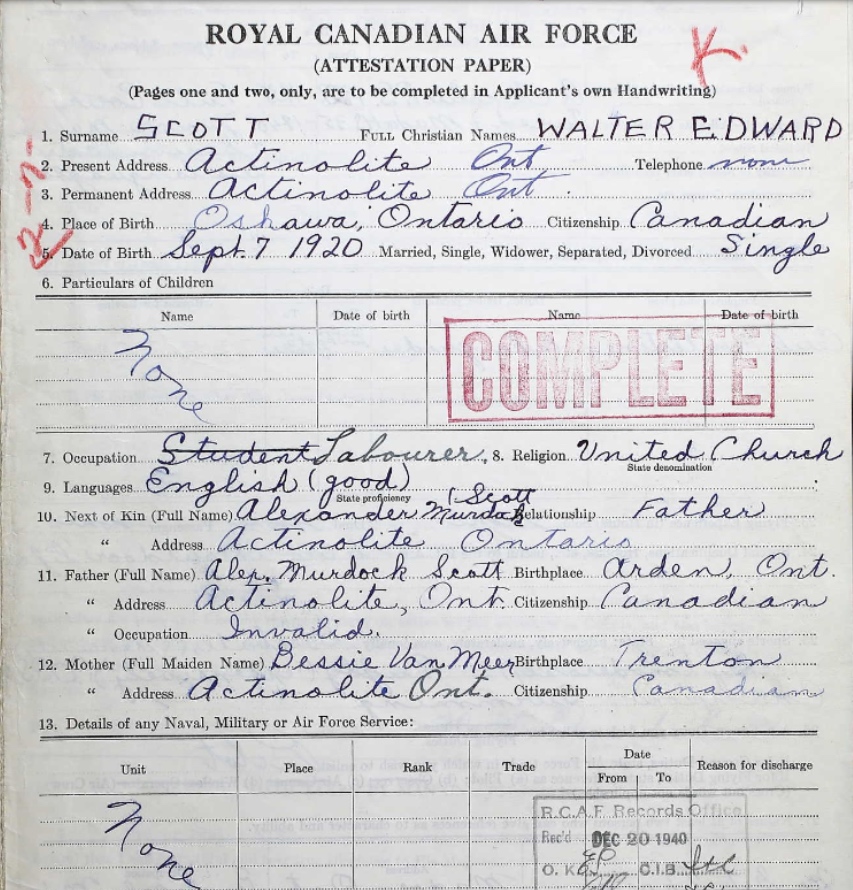 ROYAL CANADIAN AIR FORCE
K.
(ATTESTATION PAPER)
(Pages one and two, only, are to be completed in Applicant's own Handwriting)
1. Surname SCOTT FULL Christian Names WALTER EDWARD
2. Present Address Actinolite Ont Telephone none
3. Permanent Address Actinolite Ont.
4. Place of Birth Oshawa, Ontario Citizenship Canadian
5. Date of Birth Sept. 7 1920 Married, Single, Widower, Separated, Divorced Single
6. Particulars of Children
Name Date of birth Name Date of birth
None
COMPLETE
7. Occupation Student Labourer, 8. Religion United Church
State denomination
9. Languages English (good)
State proficiency
(Scott
10. Next of Kin (Full Name) Alexander Murdock Relationship Father
" Address Actinolite Ontario
11. Father (Full Name) Alex. Murdock Scott Birthplace Arden, Ont.
" Address Actinolite, Ont. Citizenship Canadian
" Occupation Invalid.
12. Mother (Full Maiden Name) Bessie Van Meer Birthplace Trenton
" Address Actinolite Ont. Citizenship Canadian
13. Details of any Naval, Military or Air Force Service:
Unit Place Rank Trade Date From To Reason for discharge
None
R.C.A.F. Records Office
Rec'd DEC 20 1940
O. K. C.I.B.